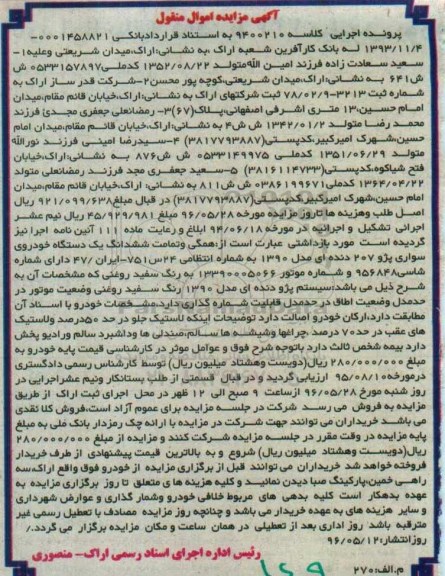 آگهی مزایده اموال منقول
پرونده اجرایی کلاسه ۹۴۰۰۲۱۰ به استناد قراردادبانکی ۱۴۵۸۸۲۱-۰۰۰۰
۱۳۹۳/۱۱/۴ لـه بانک کارآفرین شعبه اراک ،به نشانی:اراک،میدان شریعتی وعلیه۱-
سعید سعادت زاده فرزند امین اللهمتولد ۱۳۵۲/۰۸/۲۲ کدملی۰۵۳۳۱۵۷۸۹۷ ش
ش۶۴۱ به نشانی:اراک،میدان شریعتی،کوچه پور محسن۲-شرکت قدر ساز اراک به
شماره ثبت ۳۲۱۳-۷۸/۰۲/۹ ثبت شرکتهای اراک به نشانی:اراک،خیابان قائم مقام،میدان
امام حسین،۱۳ متری اشرفی اصفهانی،پلاک(۶۷)۳- رمضانعلی جعفری مجدئ فرزند
محمد رضا متولد ۱۳۴۲/۰۱/۲ ش ش۴ به نشانی:اراک،خیابان قائم مقام،میدان امام
حسین،شهرک امیرکبیر،کدپستی(۳۸۱۷۷۹۳۸۸۷) ۴-سیدرضا امینی فرزند نورالله
متولد ۱۳۵۱/۰۶/۲۹ کدملی ۰۵۳۳۱۴۹۹۷۵ ش ش۸۷۶ به نشانی:اراک،خیابان
فتح شیاکوه،کدپستی(۳۸۱۶۱۱۴۷۳۳) ۵-سعید جعفری مجد فرزند رمضانعلی متولد
۱۳۶۴/۰۴/۲۲ کدملی۰۳۸۶۱۹۹۶۷۱ ش ش۸۱۱ به نشانی: اراک،خیابان قائم مقام،میدان
امام حسین،شهرک امیرکبیر،کدپستی(۳۸۱۷۷۹۳۸۸۷) در قبال مبلغ۹۲۱/۰۹۹/۶۳۸ ریال
اصل طلب وهزینه ها تاروز مزایده مورخه ۹۶/۰۵/۲۸ مبلغ ۴۵/۹۲۹/۹۸۱ ریال نیم عشر
اجرائی تشکیل و اجرائیه در مورخه ۹۴/۰۶/۱۸ ابلاغ و رعایت ماده ۱۱۱ آئین نامه اجرا نیز
گردیده است مورد بازداشتی عبارت است از:همگی وتمامت ششدانگ یک دستگاه خودروی
سواری پژو ۲۰۷ دنده ای مدل ۱۳۹۰ به شماره انتظامی ۲۴س۷۵۱-ایران /۴۷ دارای شماره
شاسی۹۵۶۸۴۸ و شماره موتور ۱۳۳۹۰۰۰۵۰۶۶ به رنگ سفید روغنی که مشخصات آن به
شرح ذیل می باشد؛سیستم پژو دنده ای مدل ۱۳۹۰ رنگ سفید روغنی وضعیت موتور در
حدمدل وضعیت اطاق در حدمدل قابلیت شماره گذاری دارد،مشخصات خودرو با اسناد آن
مطابقت دارد،ارکان خودرو اصالت دارد توضیحات اینکه لاستیک جلو در حد ۵۰درصد ولاستیک
های عقب در حد۷۰ درصد ،چراغها وشیشه ها سالم،صندلی ها وداشبرد سالم ورادیو پخش
دارد بیمه شخص ثالث دارد باتوجه شرح فوق و عوامل موثر در کارشناسی قیمت پایه خودرو به
مبلغ ۲۸۰/۰۰۰/۰۰۰ ریال(دویست وهشتاد میلیون ریال) توسط کارشناس رسمی دادگستری
درمورخه۹۵/۰۸/۱۰ ارزیابی گردید و در قبال قسمتی از طلب بستانکار ونیم عشراجرایی در
روز شنبه مورخ ۹۶/۰۵/۲۸ ازساعت ۹ صبح الی ۱۲ ظهر در محل اجرای ثبت اراک از طریق
مزایده به فروش می رسد شرکت در جلسه مزایده برای عموم آزاد است،فروش کلا نقدی
می باشد خریداران می توانند جهت شرکت در مزایده با ارائه چک رمزدار بانک ملی به مبلغ
پایه مزایده در وقت مقرر در جلسه مزایده شرکت کنند و مزایده از مبلغ ۲۸۰/۰۰۰/۰۰۰
ریال(دویست وهشتاد میلیون ریال) شروع و به بالاترین قیمت پیشنهادی از طرف خریدار
فروخته خواهد شد خریداران می توانند قبل از برگزاری مزایده از خودرو فوق واقع اراک،سه
راهی خمین،پارکینگ صبا دیدن نمائید و کلیه هزینه های متعلق تا روز برگزاری مزایده به
عهده بدهکار است کلیه بدهی های مربوط خلافی خودرو وشماره گذاری و عوارض شهرداری
و سایر هزینه های به عهده خریدار می باشد و چنانچه روز مزایده مصادف با تعطیل رسمی غیر
مترقبه باشد روز اداری بعد از تعطیلی در همان ساعت و مکان مزایده برگزار می گردد./
روزانتشار:۹۶/۰۵/۱۲
رئیس اداره اجرای اسناد رسمی اراک- منصوری
م.الف:۲۷۰